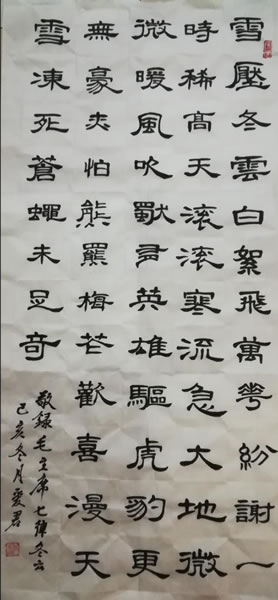 雪壓冬雲白絮飛萬花紛謝一
時稀高天滾滾寒流急大地微
微暖風吹獨有英雄驅虎豹更
無豪杰怕熊羆梅花歡喜漫天
雪凍死蒼蠅未足奇
敬録毛主席七律冬云
己亥冬月愛君